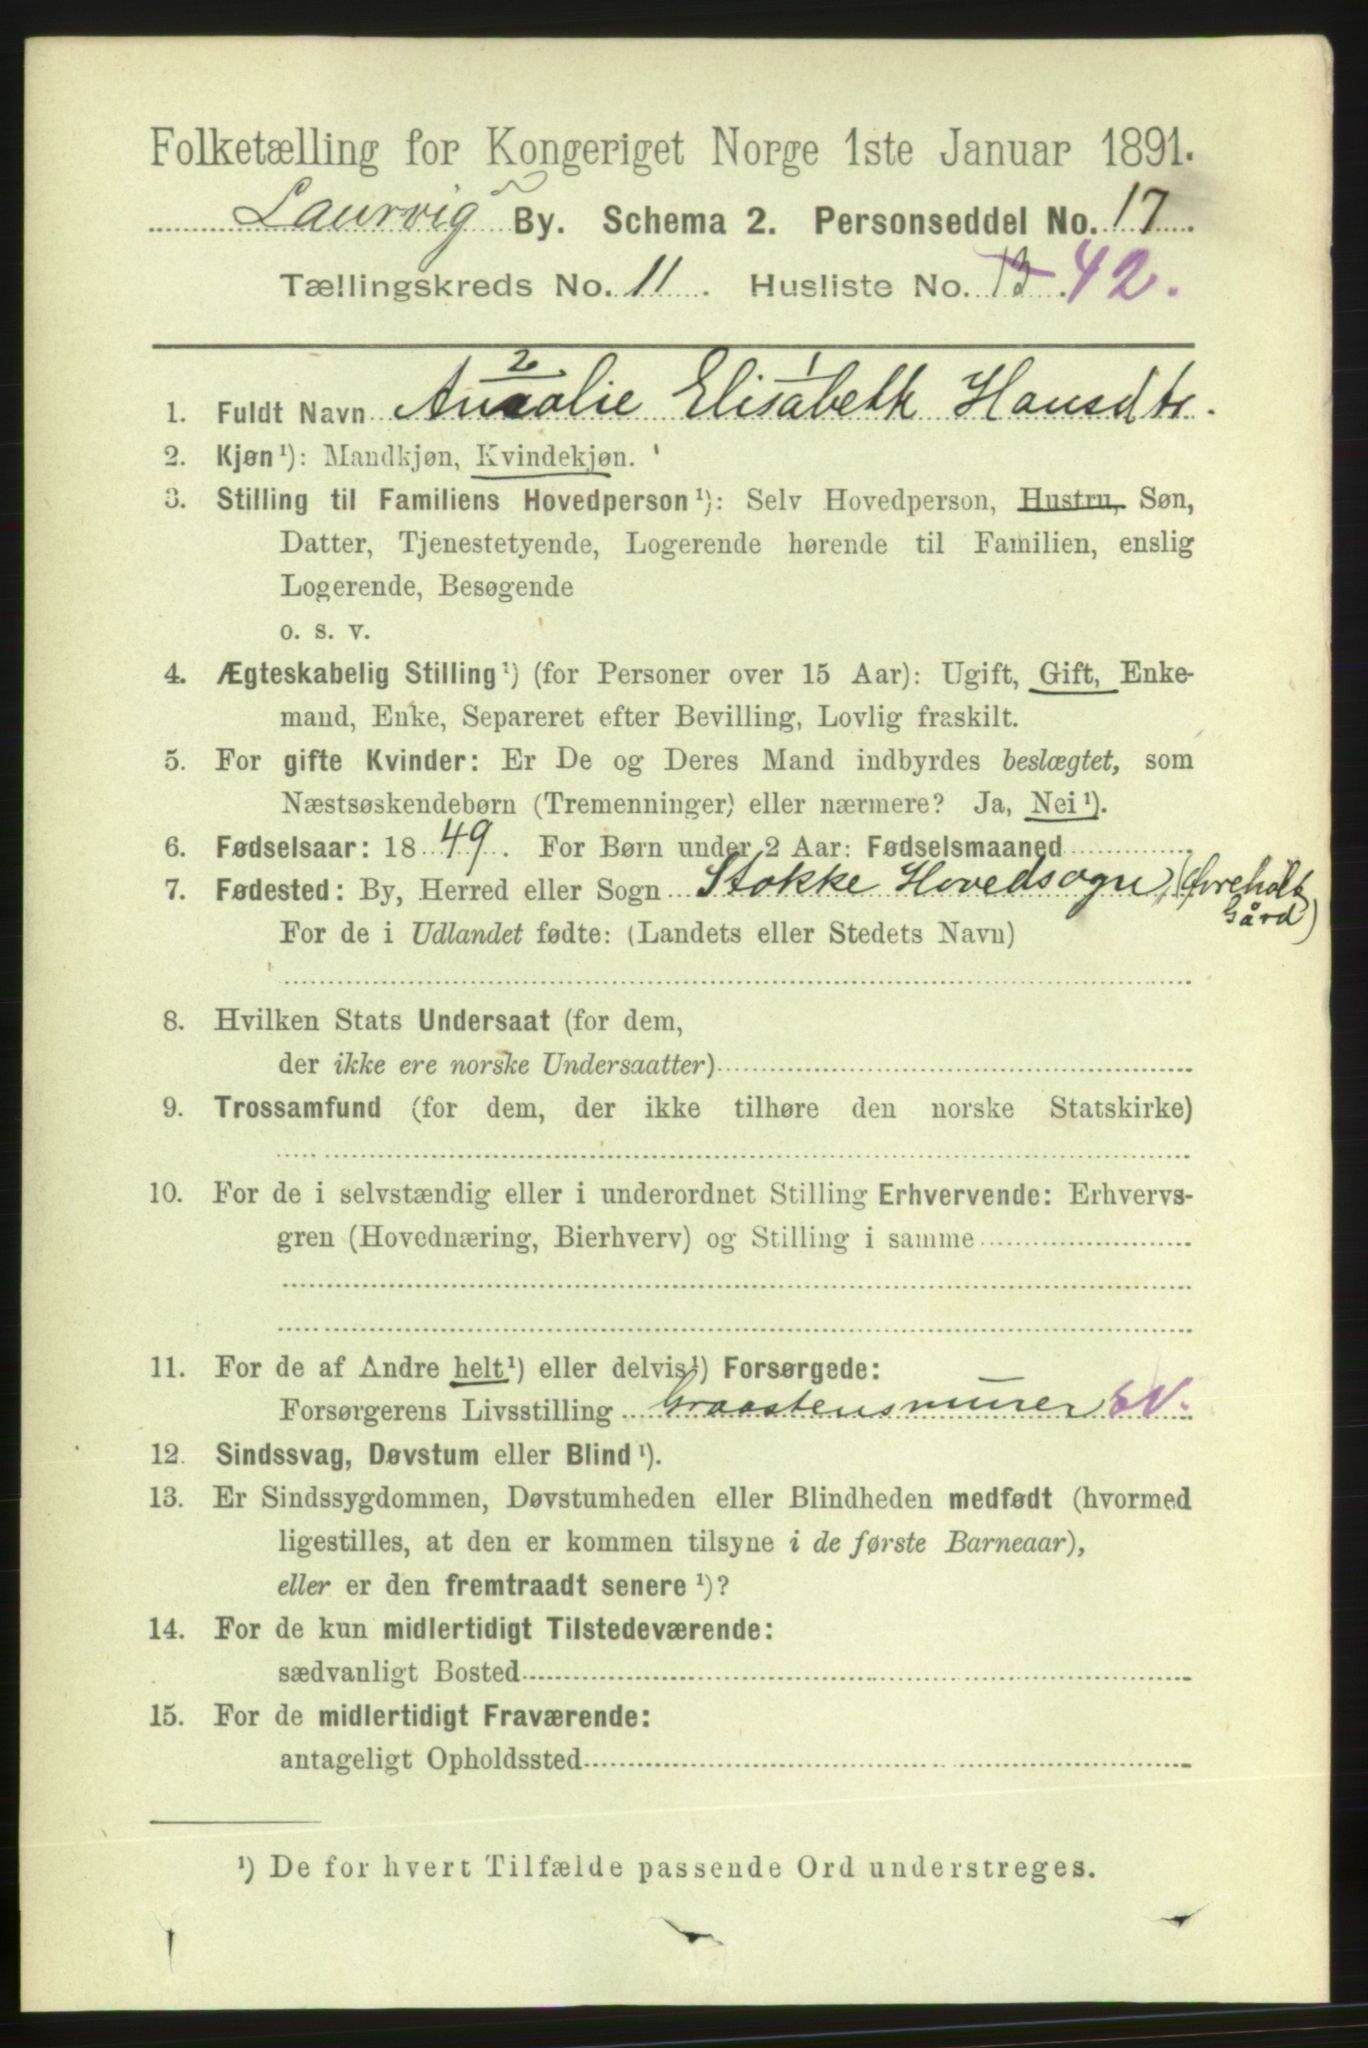 Folketælling for Kongeriget Norge 1ste Januar 1891.
Laurvig By. Schema 2. Personseddel No. 17.
Tællingskreds No. 11. Husliste No. 13. 42.
2 1
1. Fuldt Navn Amalie Elisabeth Hansdtr.
2. Kjøn¹): Mandkjøn, Kvindekjøn.
3. Stilling til Familiens Hovedperson¹): Selv Hovedperson, Hustru, Søn,
Datter, Tjenestetyende, Logerende hørende til Familien, enslig
Logerende, Besøgende
o. s. v.
4. Ægteskabelig Stilling¹) (for Personer over 15 Aar): Ugift, Gift, Enke-
mand, Enke, Separeret efter Bevilling, Lovlig fraskilt.
5. For gifte Kvinder: Er De og Deres Mand indbyrdes beslægtet, som
Næstsøskendebørn (Tremenninger) eller nærmere? Ja, Nei¹).
6. Fødselsaar: 1849. For Børn under 2 Aar: Fødselsmaaned
7. Fødested: By, Herred eller Sogn Stokke Hovedsogn,
Gård)
For de i Udlandet fødte: (Landets eller Stedets Navn)
8. Hvilken Stats Undersaat (for dem,
der ikke ere norske Undersaatter)
9. Trossamfund (for dem, der ikke tilhøre den norske Statskirke)
10. For de i selvstændig eller i underordnet Stilling Erhvervende: Erhvervs-
gren (Hovednæring, Bierhverv) og Stilling i samme
11. For de af Andre helt¹) eller delvis¹) Forsørgede:
Forsørgerens Livsstilling Graastensmurer
12. Sindssvag, Døvstum eller Blind¹).
13. Er Sindssygdommen, Døvstumheden eller Blindheden medfødt (hvormed
ligestilles, at den er kommen tilsyne i de første Barneaar),
eller er den fremtraadt senere¹)?
14. For de kun midlertidigt Tilstedeværende:
sædvanligt Bosted
15. For de midlertidigt Fraværende:
antageligt Opholdssted
¹) De for hvert Tilfælde passende Ord understreges.